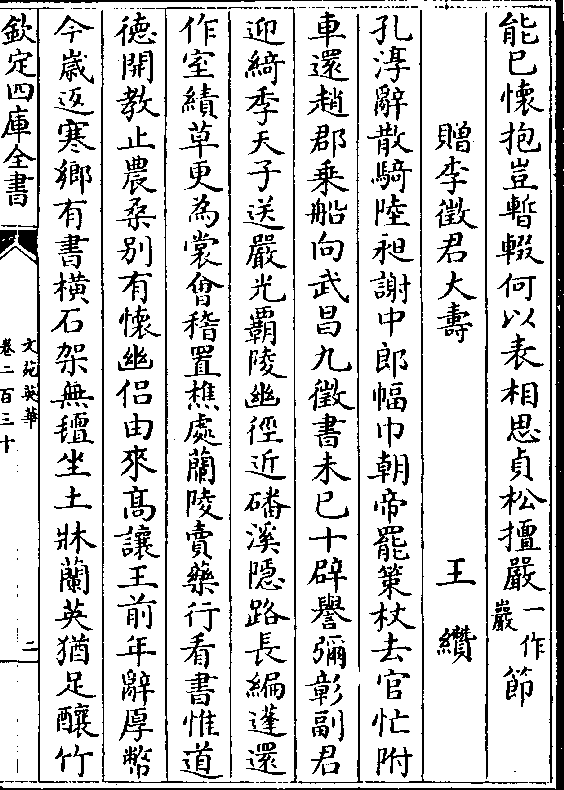 能已懷抱豈暫輟何以表相思貞松擅嚴一作巖節
贈李徵君大壽
王纘
孔淳辭散騎陸昶謝中郎幅巾朝帝罷策杖去官忙附
車還趙郡乗船向武昌九徵書未已十辟譽彌彰副君
迎綺季天子送嚴光覇陵幽徑近磻溪隱路長編蓬還
作室績草更為裳㑹稽置樵處蘭陵賣藥行看書惟道
徳開教止農桑别有懷幽侣由來髙讓王前年辭厚幣
今嵗返寒鄉有書横石架無氊坐土牀蘭英猶足釀竹
欽定四庫全書
文苑英華
卷二百三十
二